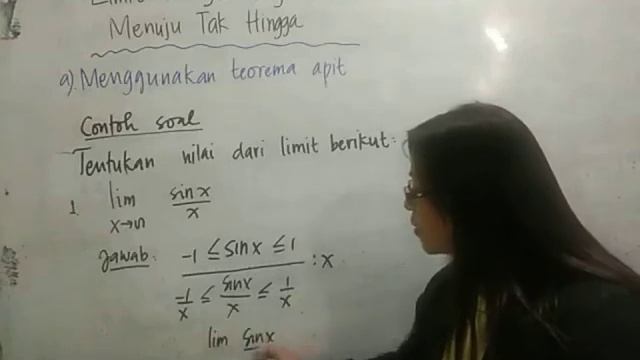 Menuju Tak Hingga
a). Menggunakan teorema apit
Contoh soal
Tentukan nilai dari limit berikut:
1. lim x→∞ sin x / x
Jawab: -1 ≤ sin x ≤ 1
: x
-1/x ≤ sin x / x ≤ 1/x
lim sin x